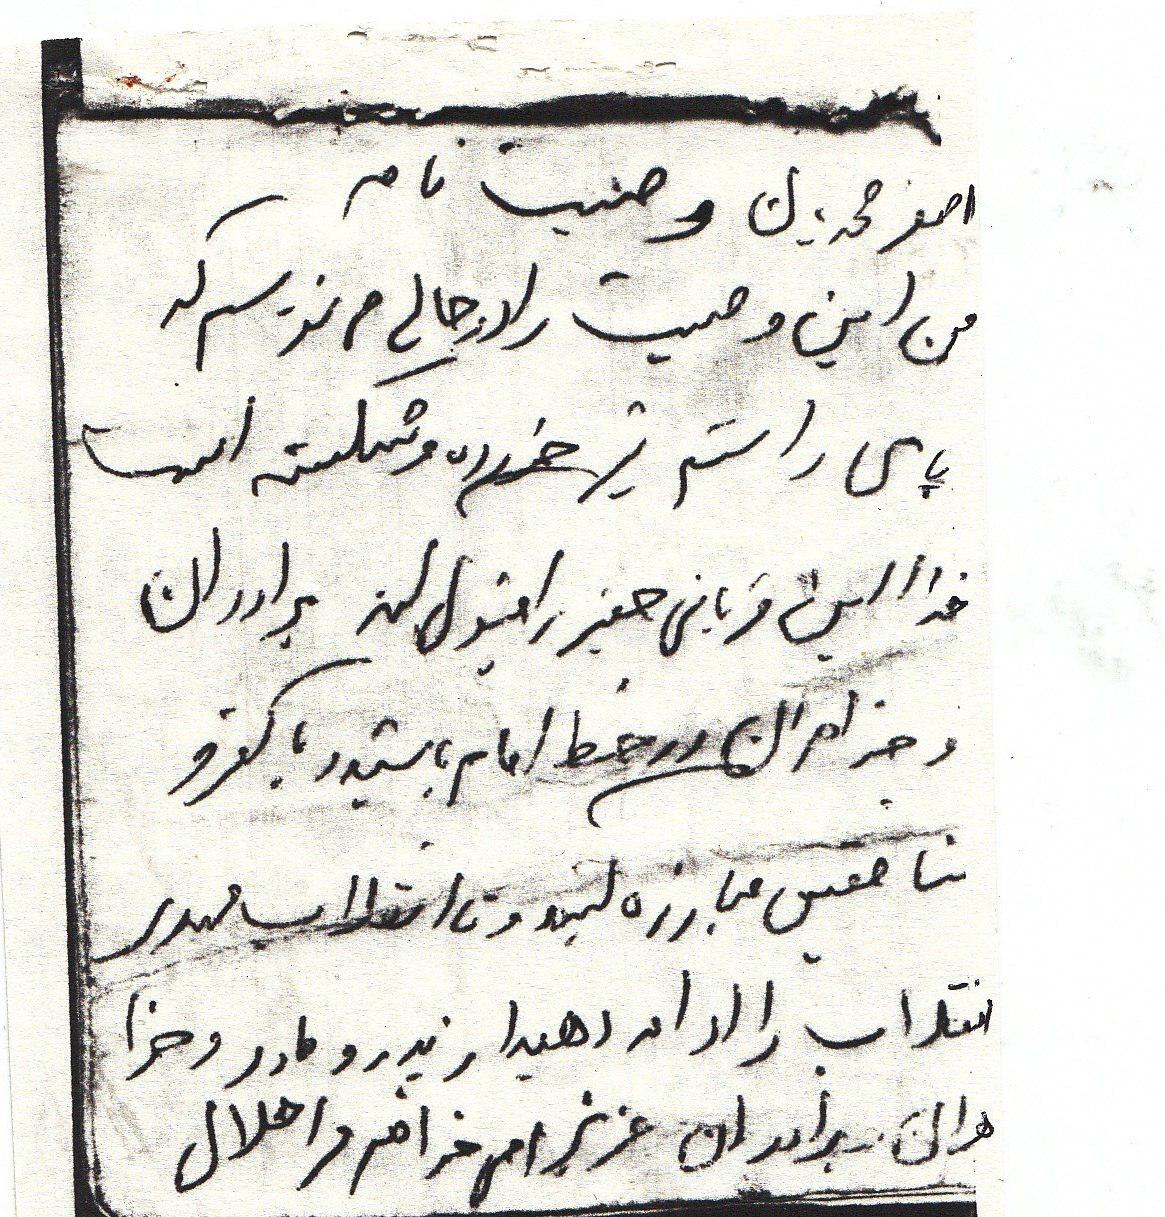 اصغر محمدیان وصیت نامه
من این وصیت را در حالی می نویسم که
پای راستم تیر خورده و شکسته است
خدا این قربانی حقیر را قبول کند برادران
و خواهران در خط امام باشید و با کفر و
منافقین مبارزه کنید و تا انقلاب مهدی
انقلاب را ادامه دهید از پدر و مادر و خوا
هران برادران عزیزم می خواهم مرا حلال